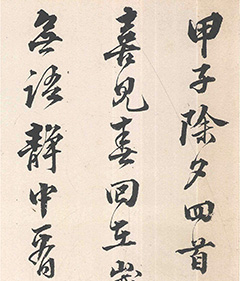 甲子除夕四首
喜見春回在歲
無語靜中看